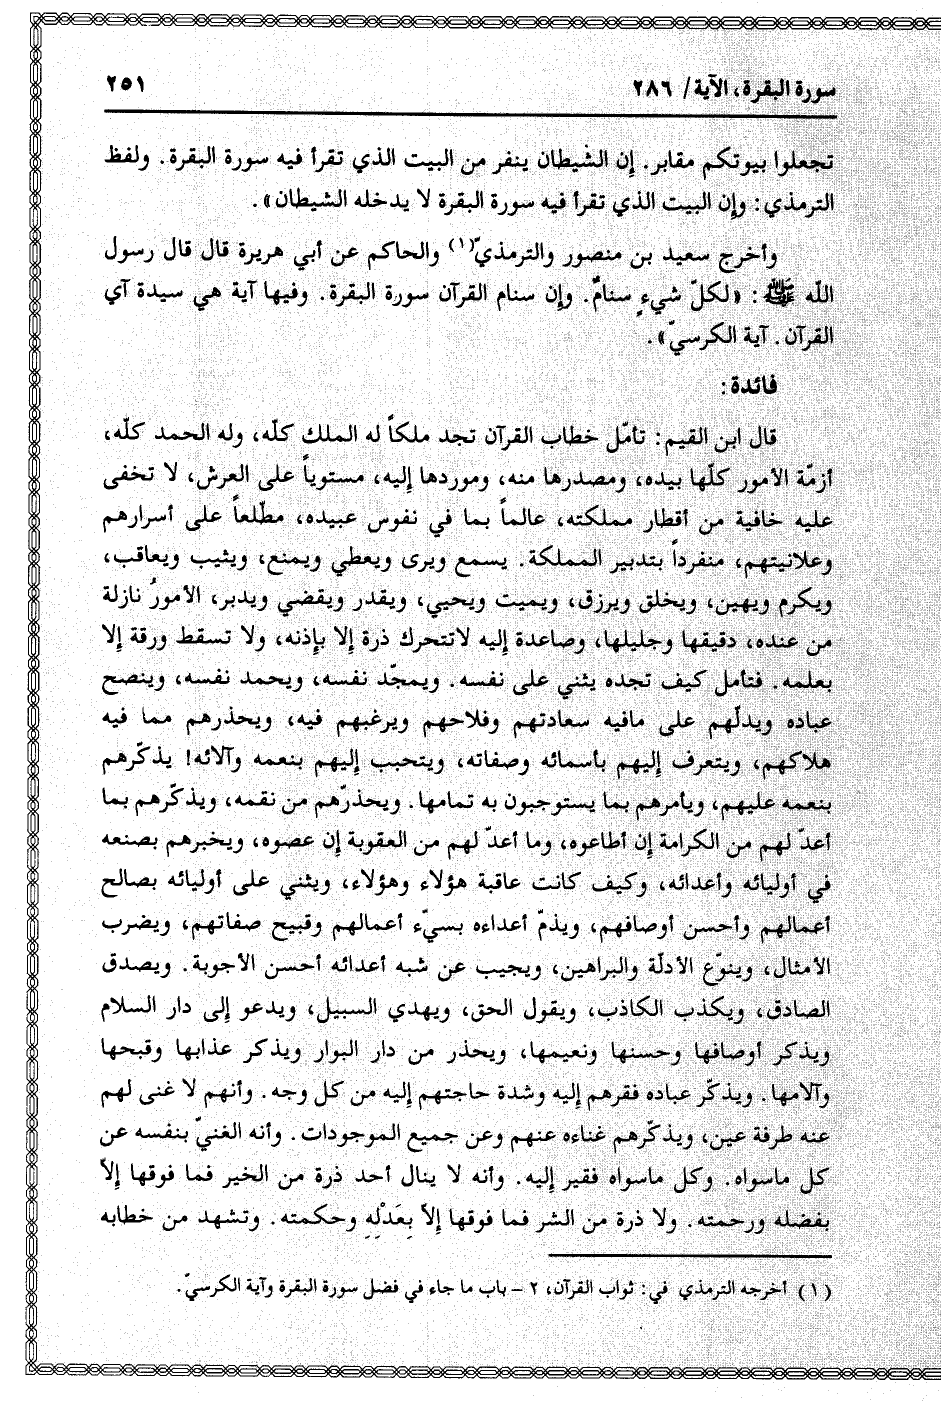 سورة البقرة، الآية/ ٢٨٦
٢٥١
تجعلوا بيوتكم مقابر. إن الشيطان ينفر من البيت الذي تقرأ فيه سورة البقرة. ولفظ
الترمذي: وإن البيت الذي تقرأ فيه سورة البقرة لا يدخله الشيطان».
وأخرج سعيد بن منصور والترمذيّ(١) والحاكم عن أبي هريرة قال قال رسول
الله ﷺ: «لكلّ شيءٍ سنامٌ. وإن سنام القرآن سورة البقرة. وفيها آية هي سيدة آي
القرآن. آية الكرسيّ».
فائدة:
قال ابن القيم: تأمّل خطاب القرآن تجد ملكاً له الملك كلّه، وله الحمد كلّه،
أزمّة الأمور كلّها بيده، ومصدرها منه، وموردها إليه، مستوياً على العرش، لا تخفى
عليه خافية من أقطار مملكته، عالماً بما في نفوس عبيده، مطّلعاً على أسرارهم
وعلانيتهم، منفرداً بتدبير المملكة. يسمع ويرى ويعطي ويمنع، ويثيب ويعاقب،
ويكرم ويهين، ويخلق ويرزق، ويميت ويحيي، ويقدر ويقضي ويدبر، الأمورُ نازلة
من عنده، دقيقها وجليلها، وصاعدة إليه لاتتحرك ذرة إلا بإذنه، ولا تسقط ورقة إلا
بعلمه. فتأمل كيف تجده يثني على نفسه. ويمجّد نفسه، ويحمد نفسه، وينصح
عباده ويدلّهم على مافيه سعادتهم وفلاحهم ويرغبهم فيه، ويحذرهم مما فيه
هلاكهم، ويتعرف إليهم بأسمائه وصفاته، ويتحبب إليهم بنعمه وآلائه! يذكّرهم
بنعمه عليهم، ويأمرهم بما يستوجبون به تمامها. ويحذرّهم من نقمه، ويذكّرهم بما
أعدّ لهم من الكرامة إن أطاعوه، وما أعدّ لهم من العقوبة إن عصوه، ويخبرهم بصنعه
في أوليائه وأعدائه، وكيف كانت عاقبة هؤلاء وهؤلاء، ويثني على أوليائه بصالح
أعمالهم وأحسن أوصافهم، ويذمّ أعداءه بسيّء أعمالهم وقبيح صفاتهم، ويضرب
الأمثال، وينوّع الأدلّة والبراهين، ويجيب عن شبه أعدائه أحسن الأجوبة. ويصدق
الصادق، ويكذب الكاذب، ويقول الحق، ويهدي السبيل، ويدعو إلى دار السلام
ويذكر أوصافها وحسنها ونعيمها، ويحذر من دار البوار ويذكر عذابها وقبحها
وآلامها. ويذكّر عباده فقرهم إليه وشدة حاجتهم إليه من كل وجه. وأنهم لا غنى لهم
عنه طرفة عين، ويذكّرهم غناءه عنهم وعن جميع الموجودات. وأنه الغنيّ بنفسه عن
كل ماسواه. وكل ماسواه فقير إليه. وأنه لا ينال أحد ذرة من الخير فما فوقها إلاّ
بفضله ورحمته. ولا ذرة من الشر فما فوقها إلاّ بِعَدْلِهِ وحكمته. وتشهد من خطابه
(١) أخرجه الترمذي في: ثواب القرآن، ٢ – باب ما جاء في فضل سورة البقرة وآية الكرسيّ.